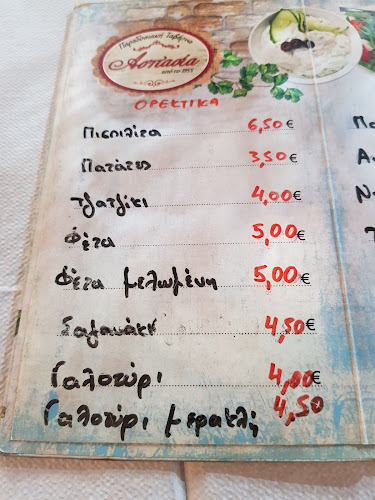 Παραδοσιακή Ταβέρνα
Ασπασία
από το 1955
ΟΡΕΚΤΙΚΑ
Πιπιλίτα 6,50€
Πατάτες 3,50€
Τζατζίκι 4,00€
Φέτα 5,00€
Φέτα μελωμένη 5,00€
Σαγανάκι 4,50€
Γαλοτύρι 4,00€
Γαλοτύρι μερακλή 4,50